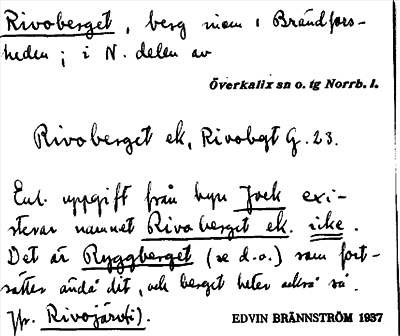 Rivoberget, berg inom Brändfors-
heden; i N. delen av
Överkalix sn o. tg Norrb. l.
Rivoberget ek, Rivobgt G. 23.
Enl. uppgift från byn Jock exi-
sterar namnet Rivoberget ek. icke.
Det är Ryggberget (se d.o.) som fort-
sätter ända dit, och berget heter också så.
Jfr. Rivojärv(i).
EDVIN BRÄNNSTRÖM 1937